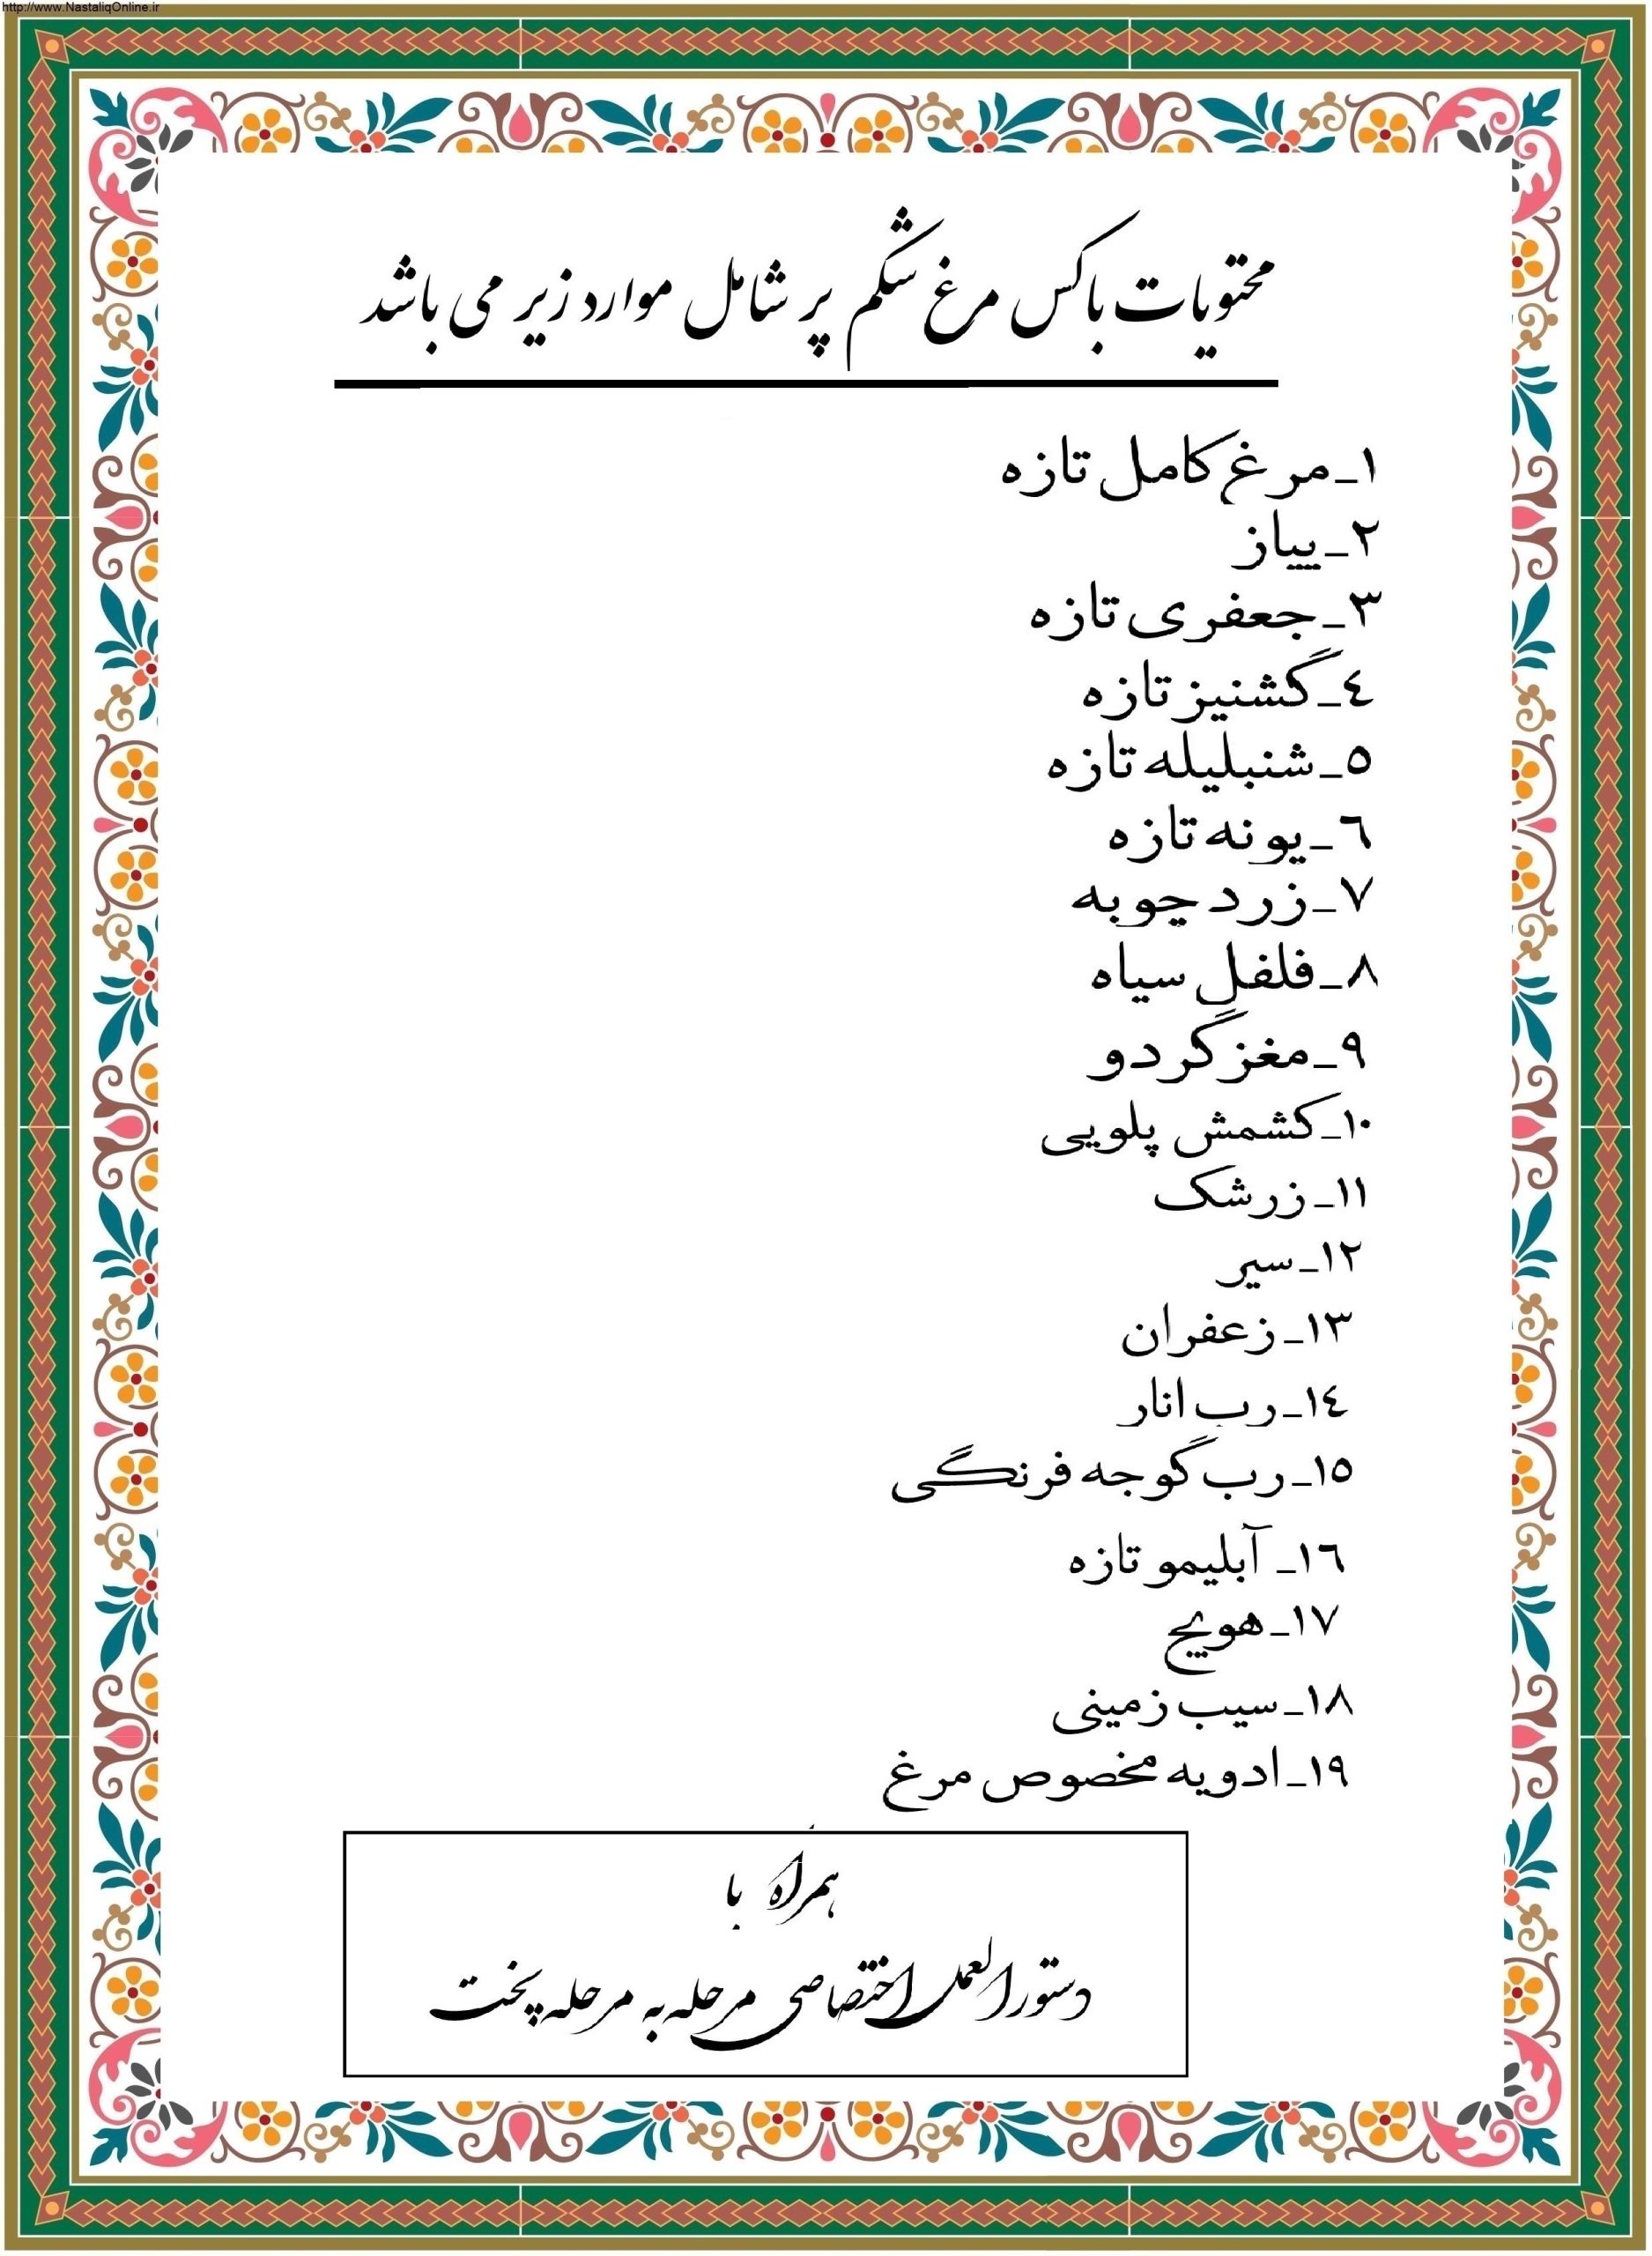 http://www.NastaliqOnline.ir
محتویات باکس مرغ شکم پر شامل موارد زیر می باشد
۱_مرغ کامل تازه
۲_پیاز
۳_جعفری تازه
٤_گشنیز تازه
٥_شنبلیله تازه
٦_پونه تازه
۷_زرد چوبه
۸_فلفل سیاه
۹_مغز گردو
۱۰_کشمش پلویی
۱۱_زرشک
۱۲_سیر
۱۳_زعفران
۱٤_رب انار
۱٥_رب گوجه فرنگی
۱٦_ آبلیمو تازه
۱۷_هویج
۱۸_سیب زمینی
۱۹_ادویه مخصوص مرغ
همراه با
دستورالعمل اختصاصی مرحله به مرحله پخت